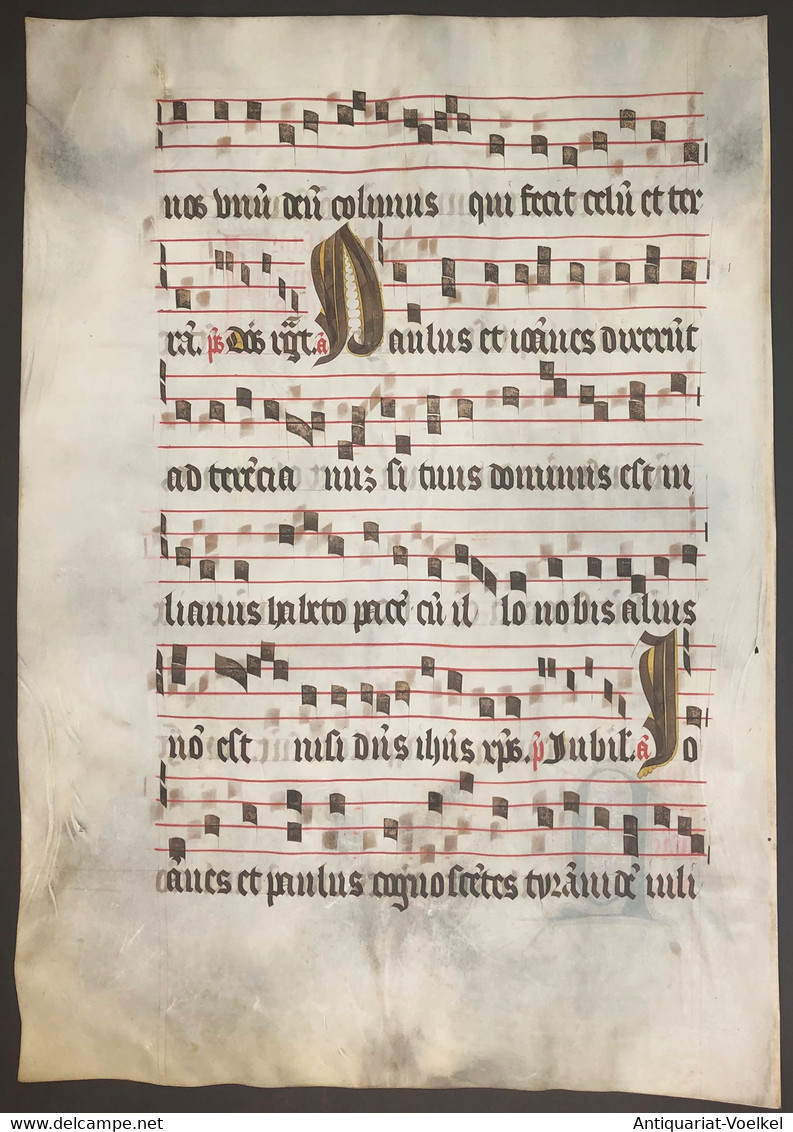 nos vnū deū colimus qui fecit celū et ter
rā. ps Dn̄s rḡt. a Paulus et ioānes dixerūt
ad terēcia nuȝ si tuus dominus est iu
lianus habeto pacē cū il lo nobis alius
nō est nisi dn̄s ihūs xp̄s. p Jubil. a Jo
ānes et paulus cognoscētes tyrānidē iuli
Antiquariat-Voelkel